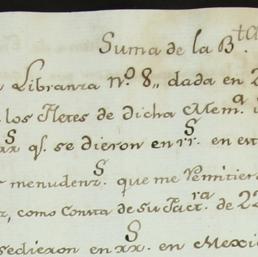 Suma de la B.ta
Libranza N.º 8,, dada en 2
los Fletes de dicha Mem.a
q.e se dieron en rr.s en est
menudenz.s que me Remitier
, como Consta de su Fact.ra de 22
se dieron en rr.s en Mexi